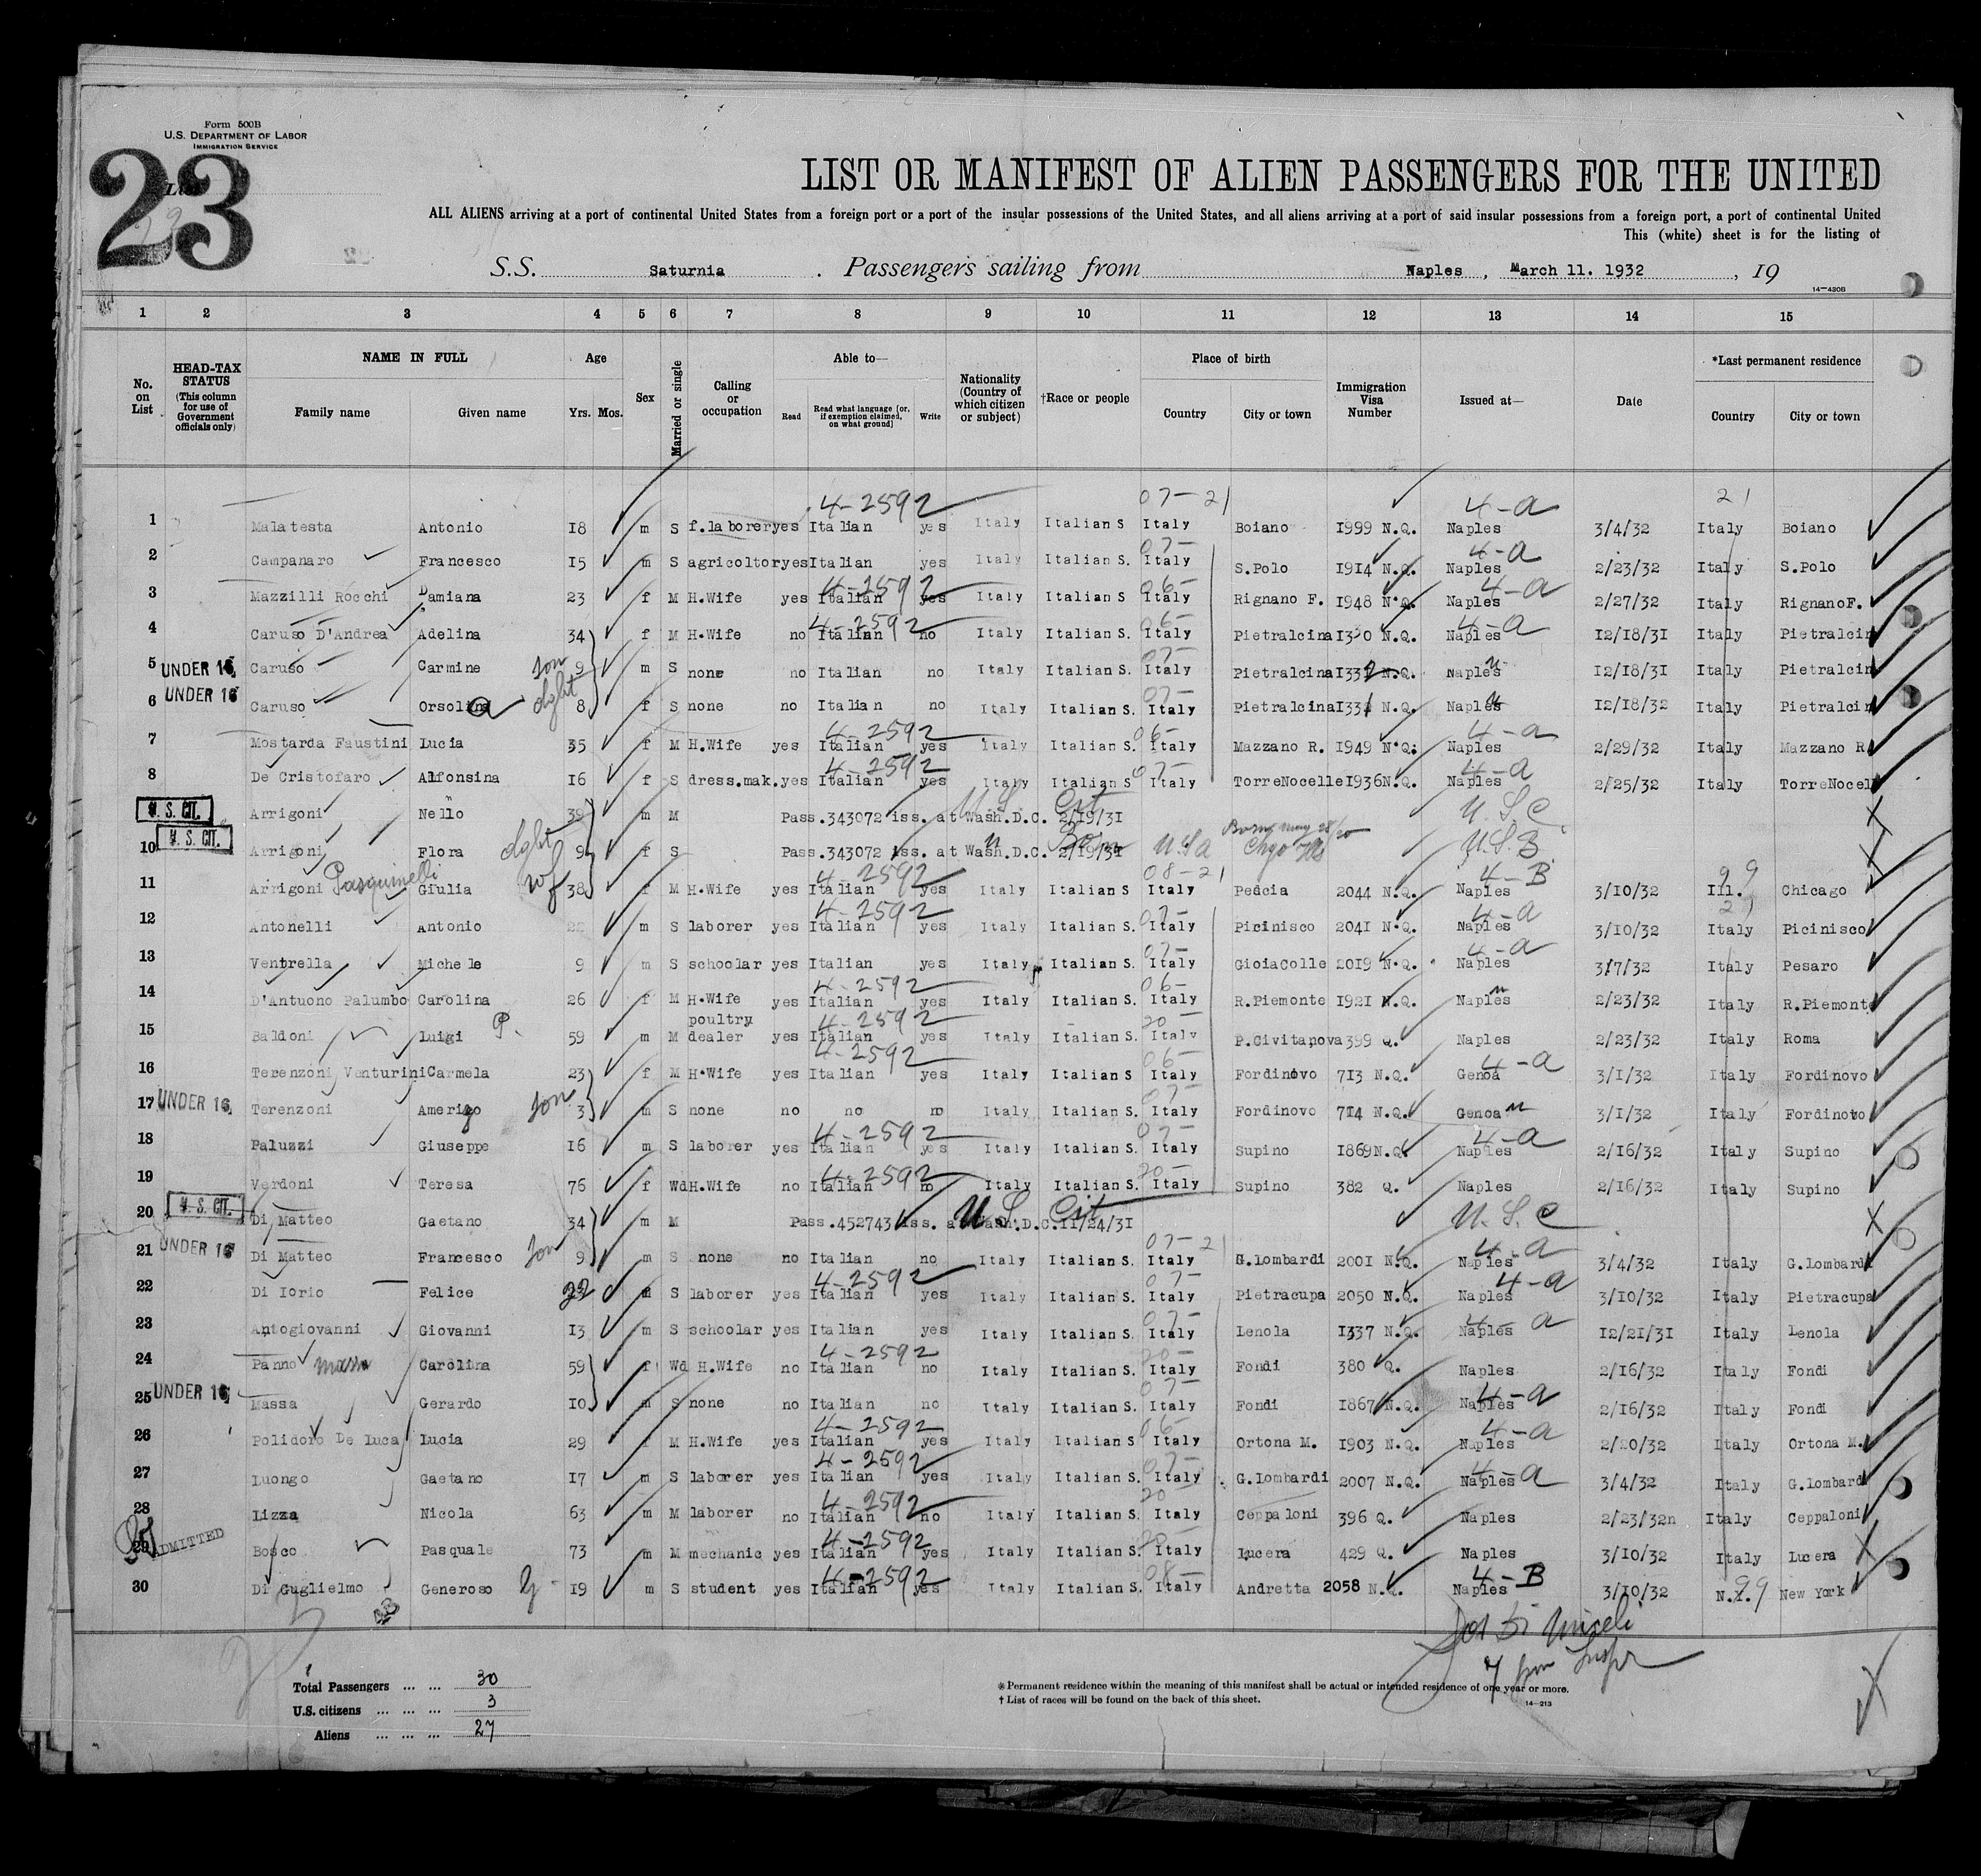 Form 500B
U.S. DEPARTMENT OF LABOR
IMMIGRATION SERVICE
23
LIST OR MANIFEST OF ALIEN PASSENGERS FOR THE UNITED
ALL ALIENS arriving at a port of continental United States from a foreign port or a port of the insular possessions of the United States, and all aliens arriving at a port of said insular possessions from a foreign port, a port of continental United
This (white) sheet is for the listing of
S.S. Saturnia . Passengers sailing from Naples , March 11. 1932 , 19
14—430B
1 2 3 4 5 6 7 8 9 10 11 12 13 14 15
No. on List
HEAD-TAX STATUS (This column for use of Government officials only)
NAME IN FULL Family name Given name
Age Yrs. Mos.
Sex
Married or single
Calling or occupation
Able to— Read Read what language [or, if exemption claimed, on what ground] Write
Nationality (Country of which citizen or subject)
†Race or people
Place of birth Country City or town
Immigration Visa Number
Issued at—
Date
*Last permanent residence Country City or town
4-2592 07-21 4-a 21
1 Malatesta Antonio 18 m S f.laborer yes Italian yes Italy Italian S Italy Boiano 1999 N.Q. Naples 3/4/32 Italy Boiano
07- 4-a
2 Campanaro Francesco 15 m S agricoltor yes Italian yes Italy Italian S. Italy S.Polo 1914 N.Q. Naples 2/23/32 Italy S.Polo
4-2592 06- 4-a
3 Mazzilli Rocchi Damiana 23 f M H.Wife yes Italian yes Italy Italian S Italy Rignano F. 1948 N.Q. Naples 2/27/32 Italy RignanoF.
4-2592 06- 4-a
4 Caruso D'Andrea Adelina 34 f M H.Wife no Italian no Italy Italian S. Italy Pietralcina 1330 N.Q. Naples 12/18/31 Italy Pietralcin
07-
5 UNDER 16 Caruso Carmine son 9 m S none no Italian no Italy Italian S. Italy Pietralcina 1332 N.Q. Naples 12/18/31 Italy Pietralcin
07-
6 UNDER 16 Caruso Orsolina dght 8 f S none no Italian no Italy Italian S. Italy Pietralcina 1331 N.Q. Naples 12/18/32 Italy Pietralcin
4-2592 06- 4-a
7 Mostarda Faustini Lucia 35 f M H.Wife yes Italian yes Italy Italian S. Italy Mazzano R. 1949 N.Q. Naples 2/29/32 Italy Mazzano R
4-2592 07- 4-a
8 De Cristofaro Alfonsina 16 f S dress.mak. yes Italian yes Italy Italian S Italy TorreNocelle 1936N.Q. Naples 2/25/32 Italy TorreNocel
U.S. Cit U.S.C.
U. S. CIT. Arrigoni Nello 39 m M Pass.343072 iss. at Wash.D.C. 2/19/31
Born May 28/20
10 U. S. CIT. Arrigoni Flora dght 9 f S Pass.343072 iss. at Wash.D.C. 2/19/31 Born USA Chgo Ills U.S.B.
4-2592 08-21 4-B 99
11 Arrigoni Pasquinelli Giulia wf 38 f M H.Wife yes Italian yes Italy Italian S Italy Pescia 2044 N.Q. Naples 3/10/32 Ill. Chicago
4-2592 07- 4-a 21
12 Antonelli Antonio m S laborer yes Italian yes Italy Italian S. Italy Picinisco 2041 N.Q. Naples 3/10/32 Italy Picinisco
07- 4-a
13 Ventrella Michele 9 m S schoolar yes Italian yes Italy Italian S. Italy GioiaColle 2019 N.Q. Naples 3/7/32 Italy Pesaro
4-2592 06-
14 D'Antuono Palumbo Carolina 26 f M H.Wife yes Italian yes Italy Italian S. Italy R.Piemonte 1921 N.Q. Naples 2/23/32 Italy R.Piemonte
4-2592 20-
15 Baldoni Luigi P. 59 m M poultry dealer yes Italian yes Italy Italian S. Italy P.Civitanova 399 Q. Naples 2/23/32 Italy Roma
4-2592 06- 4-a
16 Terenzoni Venturini Carmela 23 f M H.Wife yes Italian yes Italy Italian S Italy Fordinovo 713 N.Q. Genoa 3/1/32 Italy Fordinovo
07-
17 UNDER 16 Terenzoni Amerigo son 3 m S none no no no Italy Italian S. Italy Fordinovo 714 N.Q. Genoa 3/1/32 Italy Fordinovo
4-2592 07- 4-a
18 Paluzzi Giuseppe 16 m S laborer yes Italian yes Italy Italian S. Italy Supino 1869N.Q. Naples 2/16/32 Italy Supino
4-2592 20-
19 Verdoni Teresa 76 f Wd H.Wife no Italian no Italy Italian S. Italy Supino 382 Q. Naples 2/16/32 Italy Supino
U.S. Cit U.S.C
20 U. S. CIT. Di Matteo Gaetano 34 m M Pass.452743 iss. at Wash.D.C.11/24/31
07-21 4-a
21 UNDER 16 Di Matteo Francesco son 9 m S none no Italian no Italy Italian S. Italy G.Lombardi 2001 N.Q. Naples 3/4/32 Italy G.Lombard
4-2592 07- 4-a
22 Di Iorio Felice 22 m S laborer yes Italian yes Italy Italian S. Italy Pietracupa 2050 N.Q. Naples 3/10/32 Italy Pietracupa
07- 4-a
23 Antogiovanni Giovanni 13 m S schoolar yes Italian yes Italy Italian S. Italy Lenola 1337 N.Q. Naples 12/21/31 Italy Lenola
4-2592 20-
24 Panno Massa Carolina 59 f Wd H.Wife no Italian no Italy Italian S. Italy Fondi 380 Q. Naples 2/16/32 Italy Fondi
07- 4-a
25 UNDER 16 Massa Gerardo 10 m S none no Italian no Italy Italian S. Italy Fondi 1867 N.Q. Naples 2/16/32 Italy Fondi
4-2592 06- 4-a
26 Polidoro De Luca Lucia 29 f M H.Wife yes Italian yes Italy Italian S Italy Ortona M. 1903 N.Q. Naples 2/20/32 Italy Ortona M.
4-2592 07- 4-a
27 Luongo Gaetano 17 m S laborer yes Italian yes Italy Italian S. Italy G.Lombardi 2007 N.Q. Naples 3/4/32 Italy G.Lombard
4-2592 20
28 Lizza Nicola 63 m M laborer no Italian no Italy Italian S. Italy Ceppaloni 396 Q. Naples 2/23/32n Italy Ceppaloni
4-2592 20-
29 ADMITTED Bosco Pasquale 73 m M mechanic yes Italian yes Italy Italian S. Italy Lucera 429 Q. Naples 3/10/32 Italy Lucera
4-2592 08- 4-B 99
30 Di Guglielmo Generoso 19 m S student yes Italian yes Italy Italian S. Italy Andretta 2058 N.Q. Naples 3/10/32 N.Y. New York
Total Passengers ... ... 30
U.S. citizens ... ... ... 3
Aliens ... ... ... 27
* Permanent residence within the meaning of this manifest shall be actual or intended residence of one year or more.
† List of races will be found on the back of this sheet.
14—213